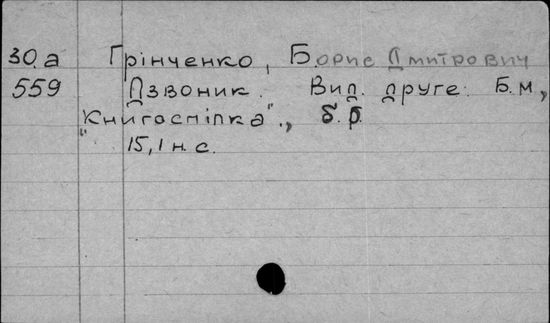 30.а Грінченко, Борис Дмитрович
559 Дзвоник. Вид. друге. Б.м,
"Книгоспілка"., б.р.
15,1 н.с.